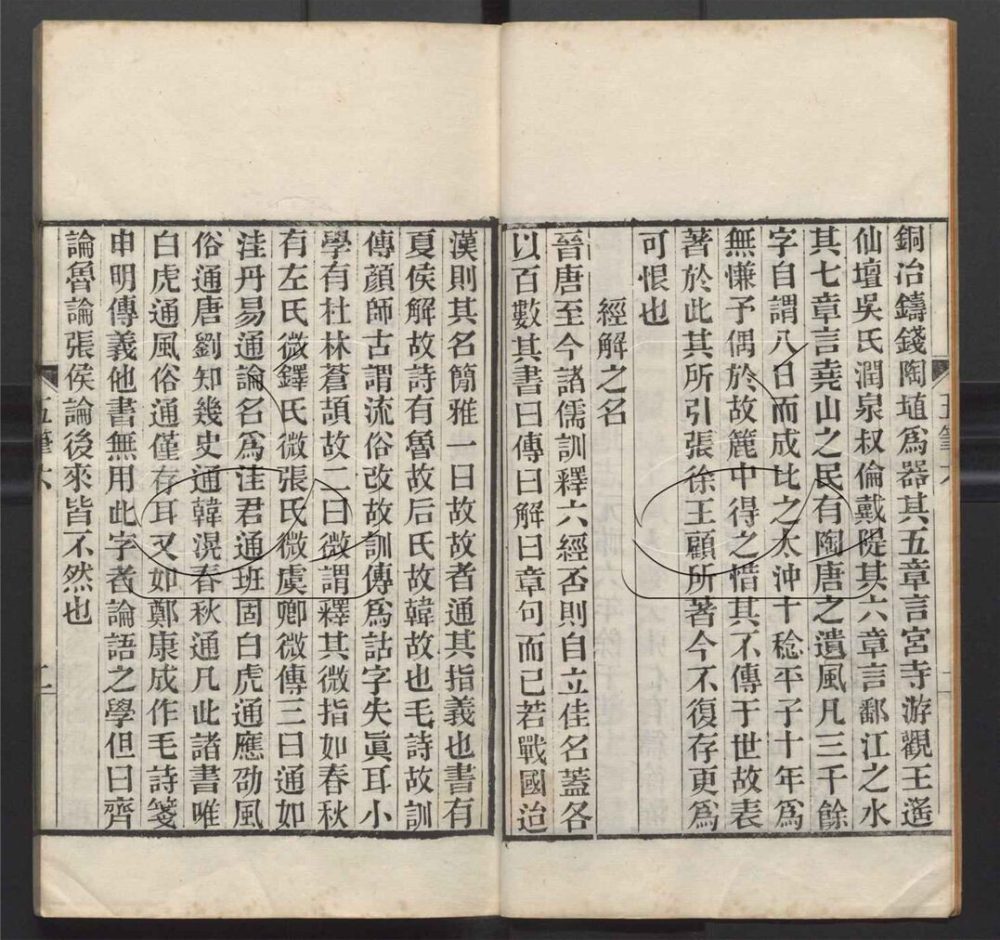 銅冶鑄錢陶埴爲器其五章言宮寺游觀王遙
仙壇吳氏潤泉叔倫戴隄其六章言鄱江之水
其七章言堯山之民有陶唐之遺風凡三千餘
字自謂八日而成比之太沖十稔平子十年爲
無慊予偶於故簏中得之惜其不傳于世故表
著於此其所引張徐王顧所著今不復存更爲
可恨也
經解之名
晉唐至今諸儒訓釋六經否則自立佳名蓋各
以百數其書曰傳曰解曰章句而已若戰國迨
漢則其名簡雅一曰故故者通其指義也書有
夏侯解故詩有魯故后氏故韓故也毛詩故訓
傳顏師古謂流俗改故訓傳爲詁字失眞耳小
學有杜林蒼頡故二曰微謂釋其微指如春秋
有左氏微鐸氏微張氏微虞卿微傳三曰通如
洼丹易通論名爲洼君通班固白虎通應劭風
俗通唐劉知幾史通韓滉春秋通凡此諸書唯
白虎通風俗通僅存耳又如鄭康成作毛詩箋
申明傳義他書無用此字者論語之學但曰齊
論魯論張侯論後來皆不然也
五筆六
二